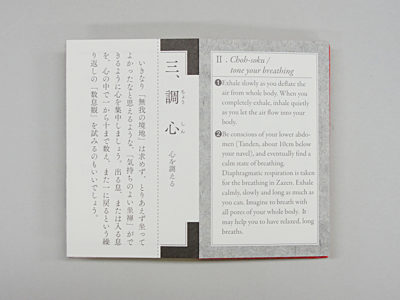 三、調心
ちょう
しん
心を調える
いきなり「無我の境地」は求めず、とりあえず坐って
よかったなと思えるような、「気持ちのよい坐禅」がで
きるように心を集中しましょう。出る息、または入る息
を、心の中で一から十まで数え、また一に戻るという繰
り返しの「数息観」を試みるのもいいでしょう。
II . Choh-soku /
tone your breathing
❶Exhale slowly as you deflate the
air from whole body. When you
completely exhale, inhale quietly
as you let the air flow into your
body.
❷Be conscious of your lower abdo-
men [Tanden, about 10cm below
your navel], and eventually find a
calm state of breathing.
Diaphragmatic respiration is taken
for the breathing in Zazen. Exhale
calmly, slowly and long as much as
you can. Imagine to breath with
all pores of your whole body.  It
may help you to have relaxed, long
breaths.